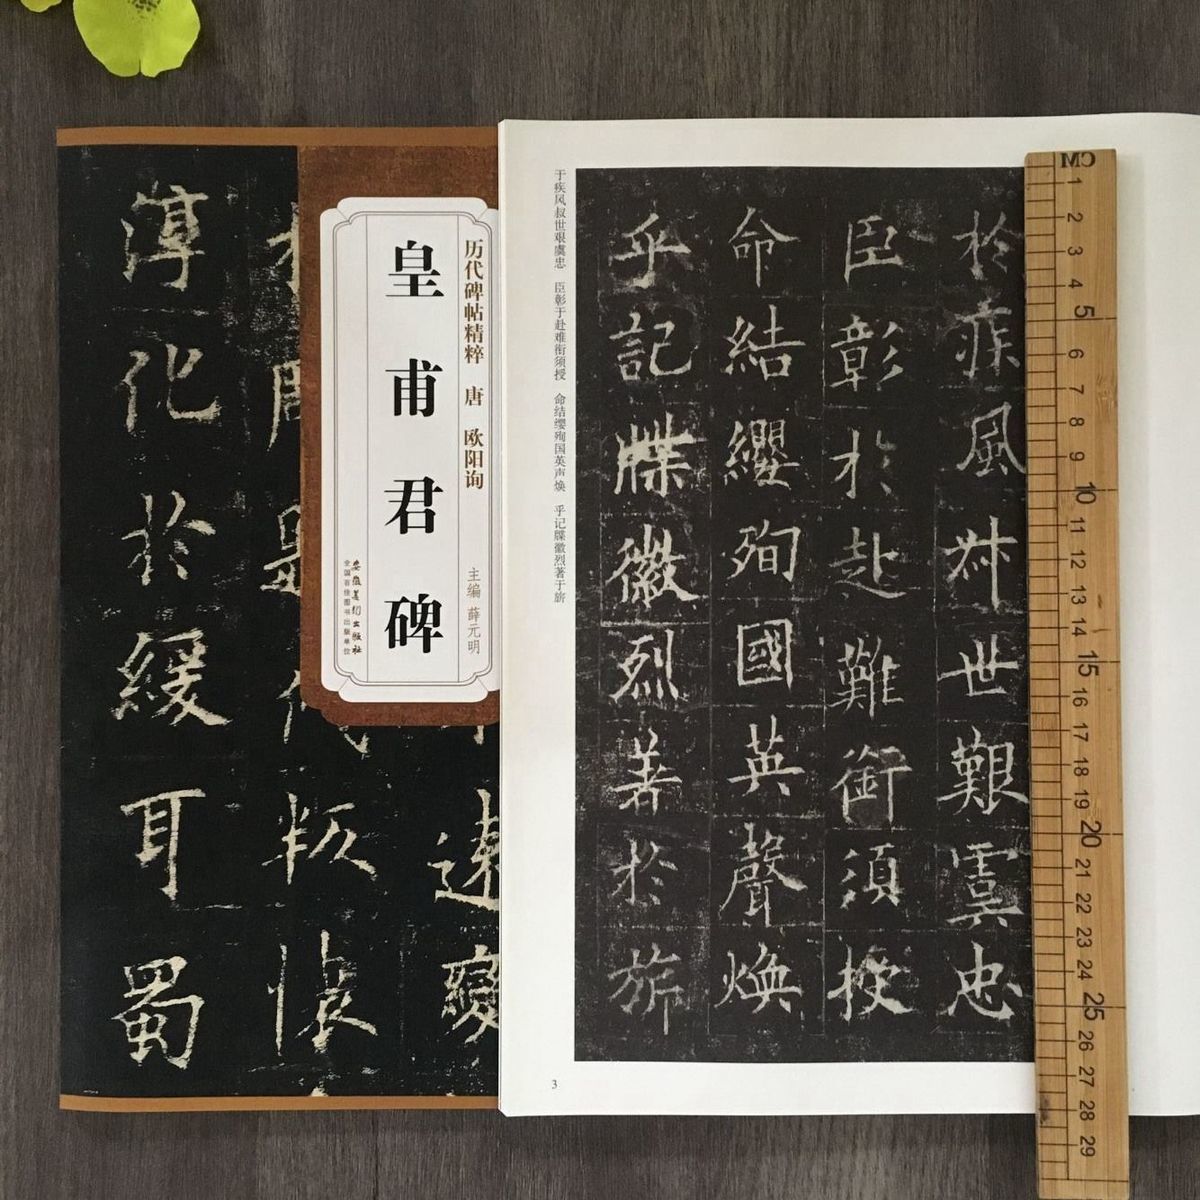 历代碑帖精粹 唐 欧阳询
皇甫君碑
主编 薛元明
安徽美术出版社
全国百佳图书出版单位
淳化於緩耳蜀
叛懷
遠變
于疾风叔世艰虞忠 臣彰于赴难衔须授 命结缨殉国英声焕 乎记牒徽烈著于旂
於疾風叔世艱虞忠
臣彰於赴難銜須授
命結纓殉國英聲煥
乎記牒徽烈著於旂
3
CM
1
2
3
4
5
6
7
8
9
10
11
12
13
14
15
16
17
18
19
20
21
22
23
24
25
26
27
28
29